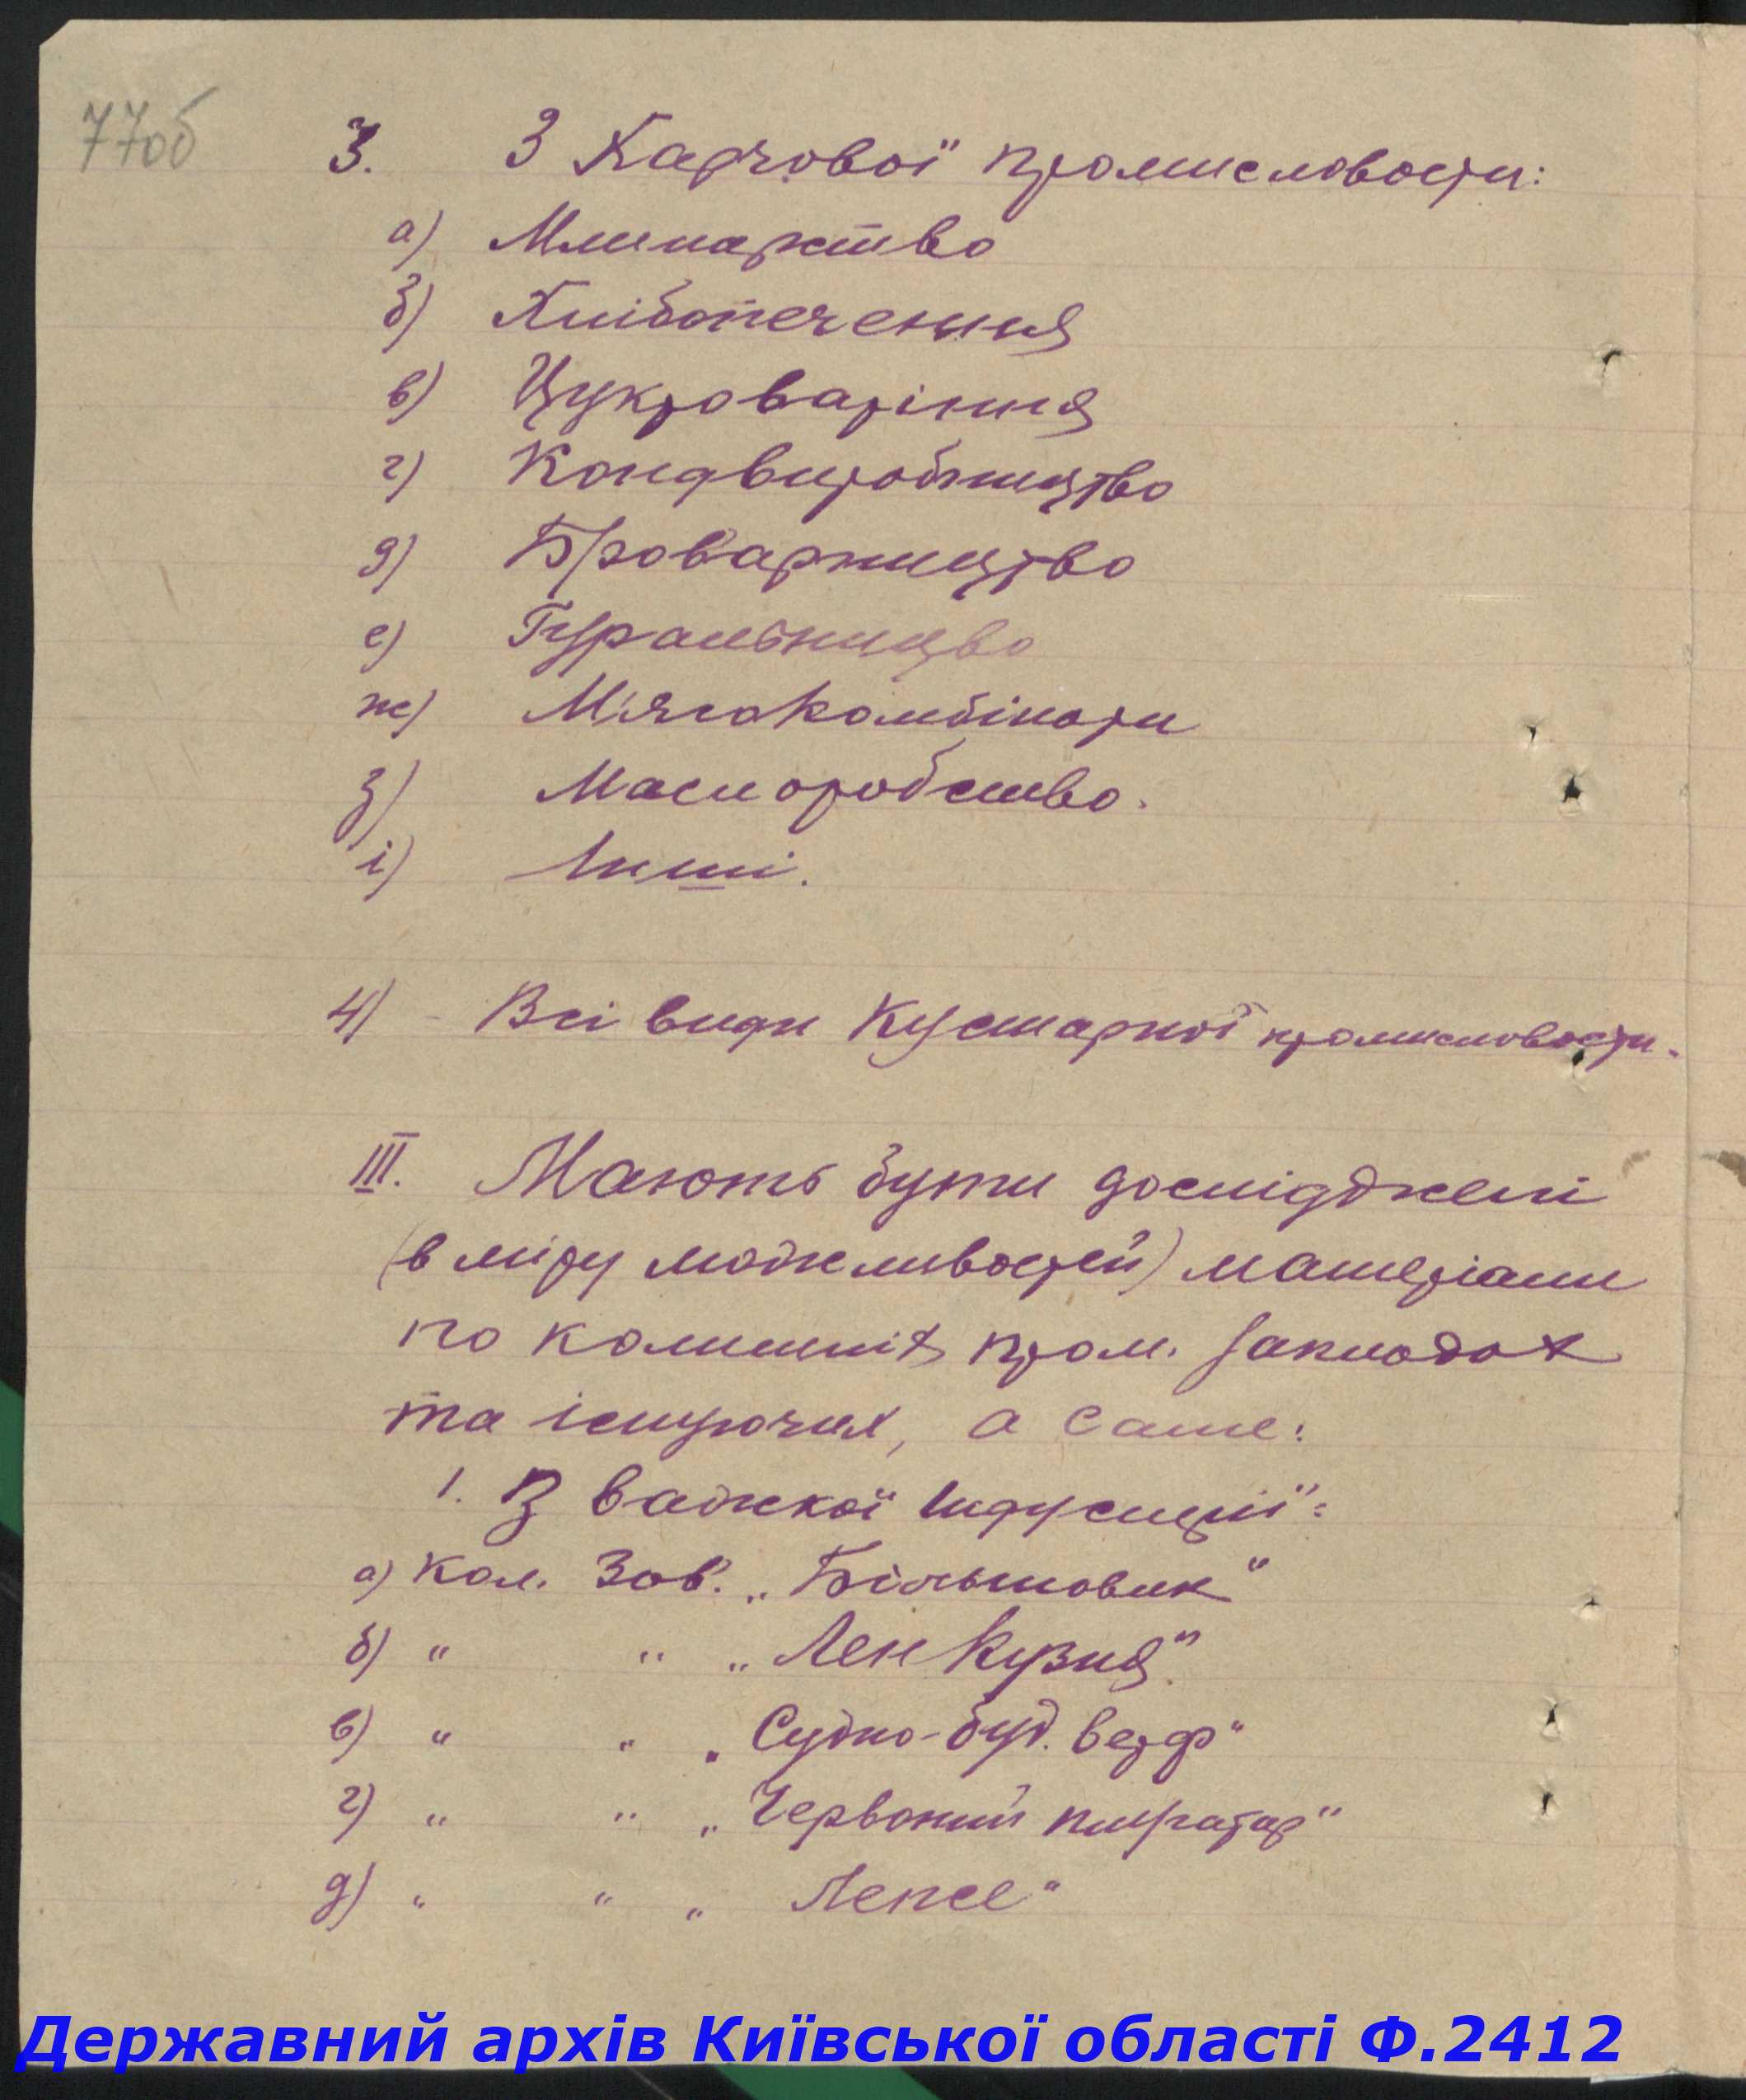 77об
3. З Харчової промисловости:
а) Млинарство
б) Хлібопечення
в) Цукроваріння
г) Кондвиробництво
д) Броварництво
е) Гуральництво
ж) М'ясокомбінати
з) Маслоробство.
і) Інші.
4) - Всі види Кустарної промисловости.
III. Мають бути досліджені
(в міру можливостей) матеріали
по колишніх пром. закладах
та існуючих, а саме:
1. З важкої Індустрії:
а) Кол. Зав. „Більшовик"
б) " " „Лен Кузня"
в) " " „Судно-буд. верф"
г) " " „Червоний плугатар"
д) " " „Лепсе"
Державний архів Київської області Ф.2412